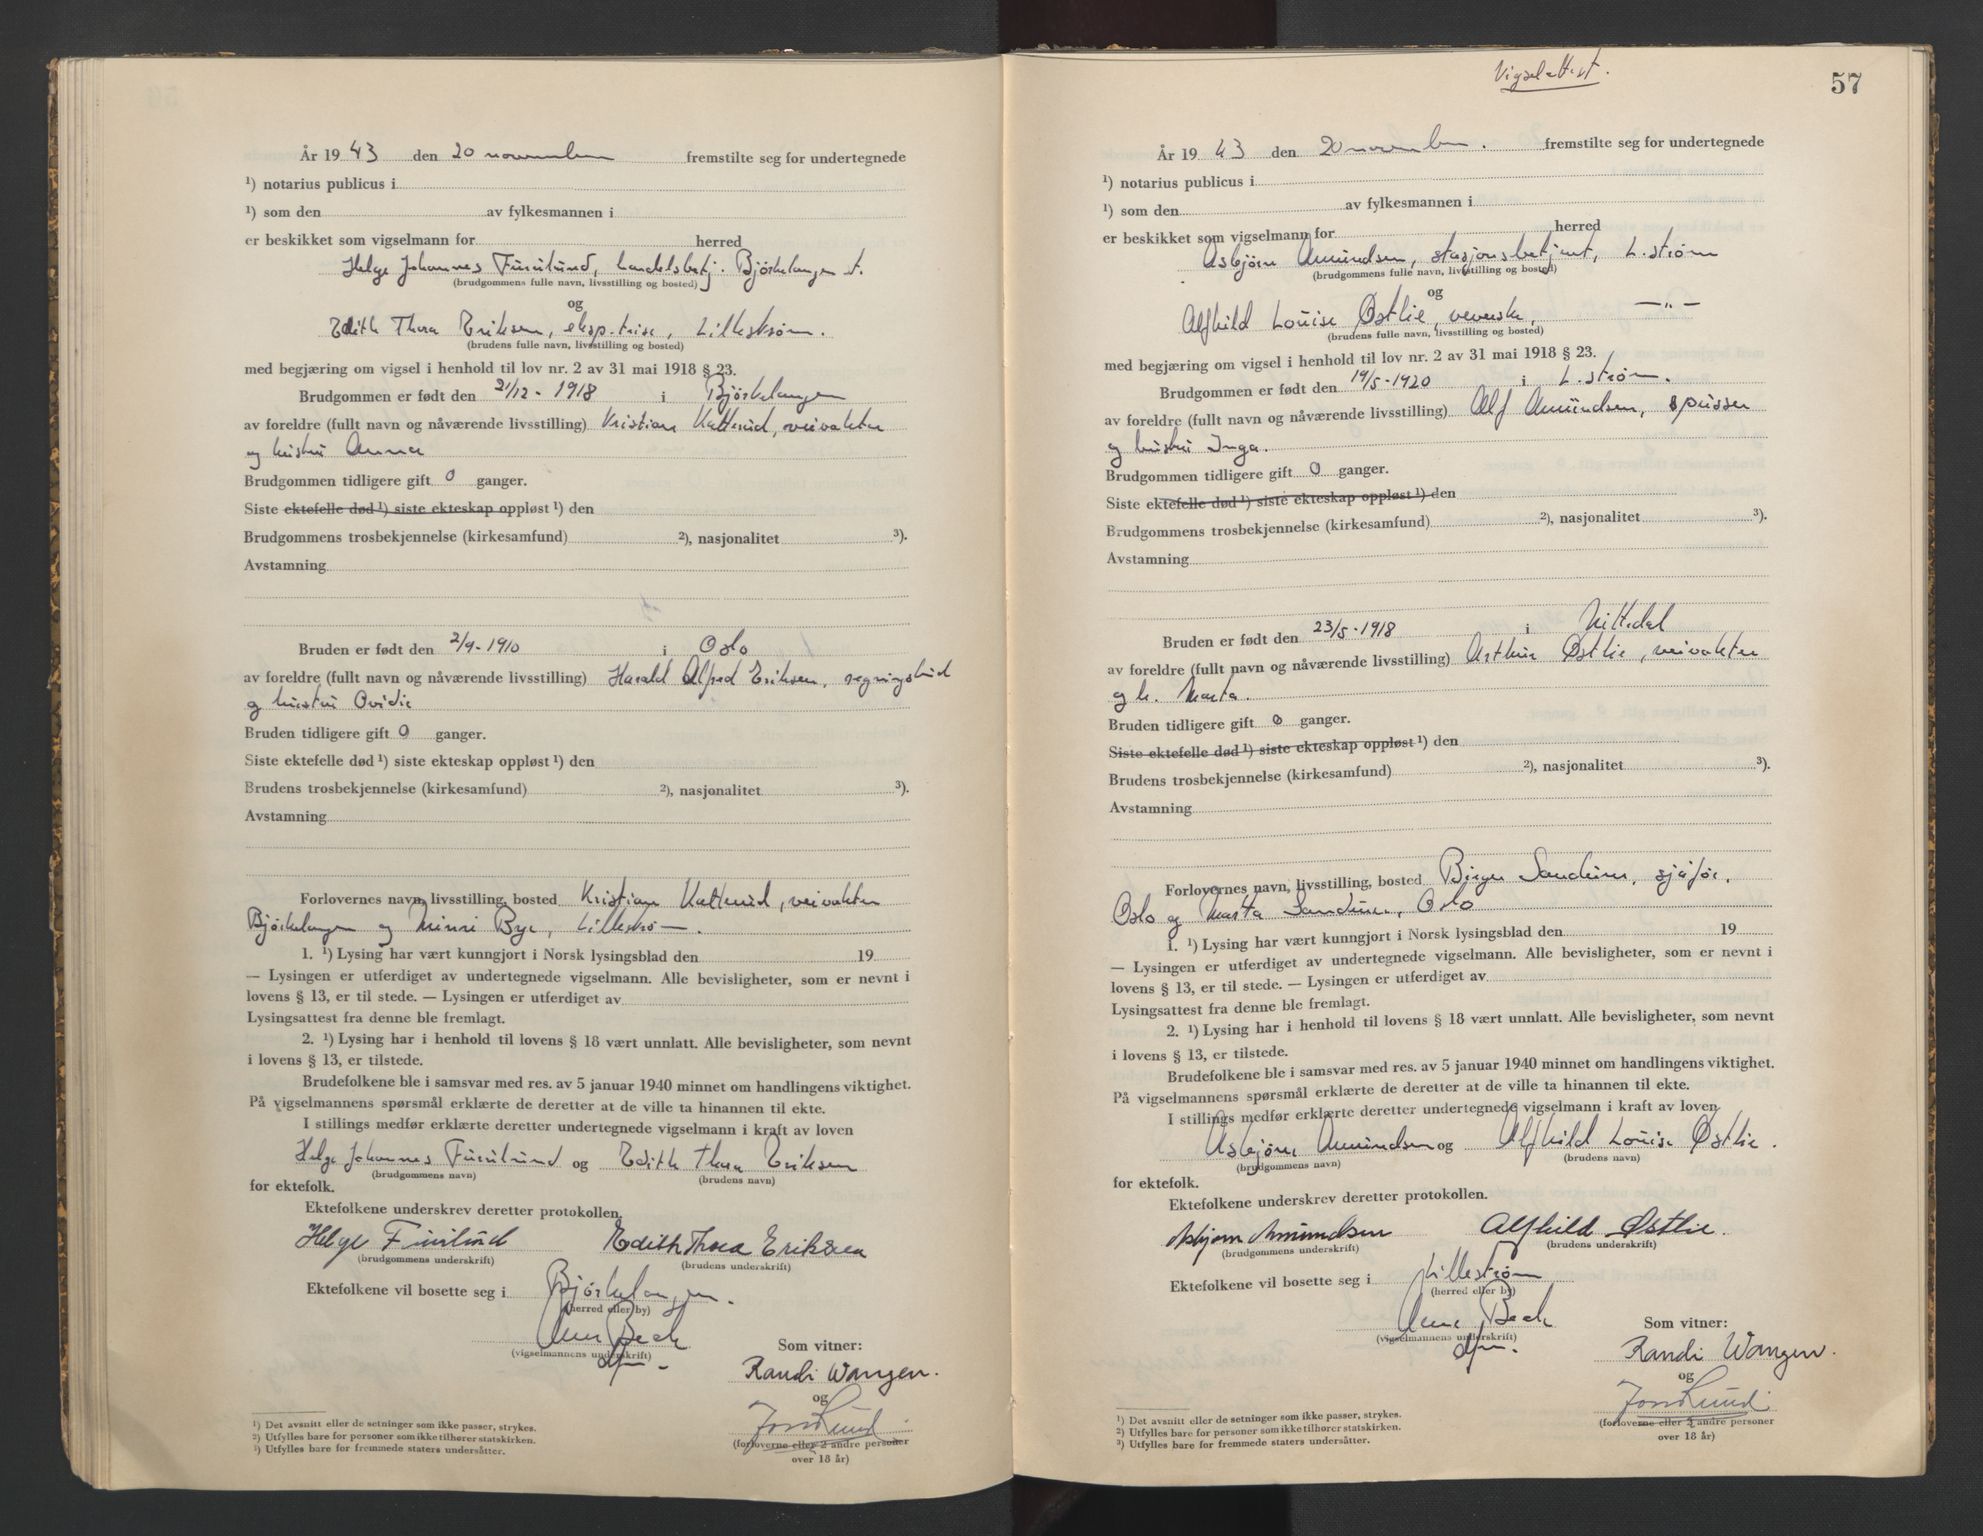 År 19 43 den 20 november fremstilte seg for undertegnede
¹) notarius publicus i
¹) som den av fylkesmannen i
er beskikket som vigselmann for herred
Helge Johannes Furulund, handelsbetj. Bjørkelangen st.
(brudgommens fulle navn, livsstilling og bosted)
og
Edith Thora Eriksen, eksp.trise, Lillestrøm.
(brudens fulle navn, livsstilling og bosted)
med begjæring om vigsel i henhold til lov nr. 2 av 31 mai 1918 § 23.
Brudgommen er født den 21/12 - 1918 i Bjørkelangen
av foreldre (fullt navn og nåværende livsstilling) Kristian Katterud, veivokter
og hustru Anna
Brudgommen tidligere gift 0 ganger.
Siste ektefelle død ¹) siste ekteskap oppløst ¹) den
Brudgommens trosbekjennelse (kirkesamfund) ²), nasjonalitet ³).
Avstamning
Bruden er født den 2/9 - 1910 i Oslo
av foreldre (fullt navn og nåværende livsstilling) Harald Alfred Eriksen, regningsbud
og hustru Ovidie
Bruden tidligere gift 0 ganger.
Siste ektefelle død ¹) siste ekteskap oppløst ¹) den
Brudens trosbekjennelse (kirkesamfund) ²), nasjonalitet ³).
Avstamning
Forlovernes navn, livsstilling, bosted Kristian Katterud, veivokter
Bjørkelangen og Minni Bye, Lillestrøm.
1. ¹) Lysing har vært kunngjort i Norsk lysingsblad den 19
— Lysingen er utferdiget av undertegnede vigselmann. Alle bevisligheter, som er nevnt i
lovens § 13, er til stede. — Lysingen er utferdiget av
Lysingsattest fra denne ble fremlagt.
2. ¹) Lysing har i henhold til lovens § 18 vært unnlatt. Alle bevisligheter, som nevnt
i lovens § 13, er tilstede.
Brudefolkene ble i samsvar med res. av 5 januar 1940 minnet om handlingens viktighet.
På vigselmannens spørsmål erklærte de deretter at de ville ta hinannen til ekte.
I stillings medfør erklærte deretter undertegnede vigselmann i kraft av loven
Helge Johannes Furulund og Edith Thora Eriksen
(brudgommens navn) (brudens navn)
for ektefolk.
Ektefolkene underskrev deretter protokollen.
Helge Furulund Edith Thora Eriksen
(brudgommens underskrift) (brudens underskrift)
Ektefolkene vil bosette seg i Bjørkelangen.
(herred eller by)
Arne Beck
(vigselmannens underskrift)
Som vitner:
Randi Wangen.
og
(forloverne eller 2 andre personer
over 18 år)
¹) Det avsnitt eller de setninger som ikke passer, strykes.
²) Utfylles bare for personer som ikke tilhører statskirken.
³) Utfylles bare for fremmede staters undersåtter.
Vigselattest.
57
År 19 43 den 20 november. fremstilte seg for undertegnede
¹) notarius publicus i
¹) som den av fylkesmannen i
er beskikket som vigselmann for herred
Asbjørn Amundsen, stasjonsbetjent, L.strøm
(brudgommens fulle navn, livsstilling og bosted)
og
Alfhild Louise Østlie, veverske, —"—
(brudens fulle navn, livsstilling og bosted)
med begjæring om vigsel i henhold til lov nr. 2 av 31 mai 1918 § 23.
Brudgommen er født den 19/5 - 1920 i L.strøm.
av foreldre (fullt navn og nåværende livsstilling) Alf Amundsen, pusser
og hustru Inga.
Brudgommen tidligere gift 0 ganger.
Siste ektefelle død ¹) siste ekteskap oppløst ¹) den
Brudgommens trosbekjennelse (kirkesamfund) ²), nasjonalitet ³).
Avstamning
Bruden er født den 23/5 - 1918 i Nittedal
av foreldre (fullt navn og nåværende livsstilling) Arthur Østlie, veivokter
og h. Marta.
Bruden tidligere gift 0 ganger.
Siste ektefelle død ¹) siste ekteskap oppløst ¹) den
Brudens trosbekjennelse (kirkesamfund) ²), nasjonalitet ³).
Avstamning
Forlovernes navn, livsstilling, bosted Birger sjåfør,
Oslo og Marta Oslo
1. ¹) Lysing har vært kunngjort i Norsk lysingsblad den 19
— Lysingen er utferdiget av undertegnede vigselmann. Alle bevisligheter, som er nevnt i
lovens § 13, er til stede. — Lysingen er utferdiget av
Lysingsattest fra denne ble fremlagt.
2. ¹) Lysing har i henhold til lovens § 18 vært unnlatt. Alle bevisligheter, som nevnt
i lovens § 13, er tilstede.
Brudefolkene ble i samsvar med res. av 5 januar 1940 minnet om handlingens viktighet.
På vigselmannens spørsmål erklærte de deretter at de ville ta hinannen til ekte.
I stillings medfør erklærte deretter undertegnede vigselmann i kraft av loven
Asbjørn Amundsen og Alfhild Louise Østlie.
(brudgommens navn) (brudens navn)
for ektefolk.
Ektefolkene underskrev deretter protokollen.
Asbjørn Amundsen Alfhild Østlie.
(brudgommens underskrift) (brudens underskrift)
Ektefolkene vil bosette seg i Lillestrøm
(herred eller by)
Arne Beck
(vigselmannens underskrift)
Som vitner:
Randi Wangen.
og
(forloverne eller 2 andre personer
over 18 år)
¹) Det avsnitt eller de setninger som ikke passer, strykes.
²) Utfylles bare for personer som ikke tilhører statskirken.
³) Utfylles bare for fremmede staters undersåtter.